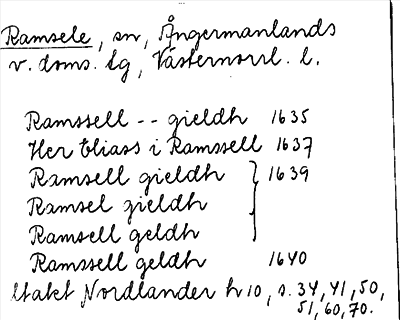 Ramsele, sn, Ångermanlands
v. doms. tg, Västernorrl. l.
Ramssell -- gieldh 1635
Her Eliass i Ramssell 1637
Ramsell gieldh } 1639
Ramsel gieldh
Ramsell geldh
Ramssell geldh 1640
Utakt Nordlander h 10, s. 34, 41, 50,
51, 60, 70.